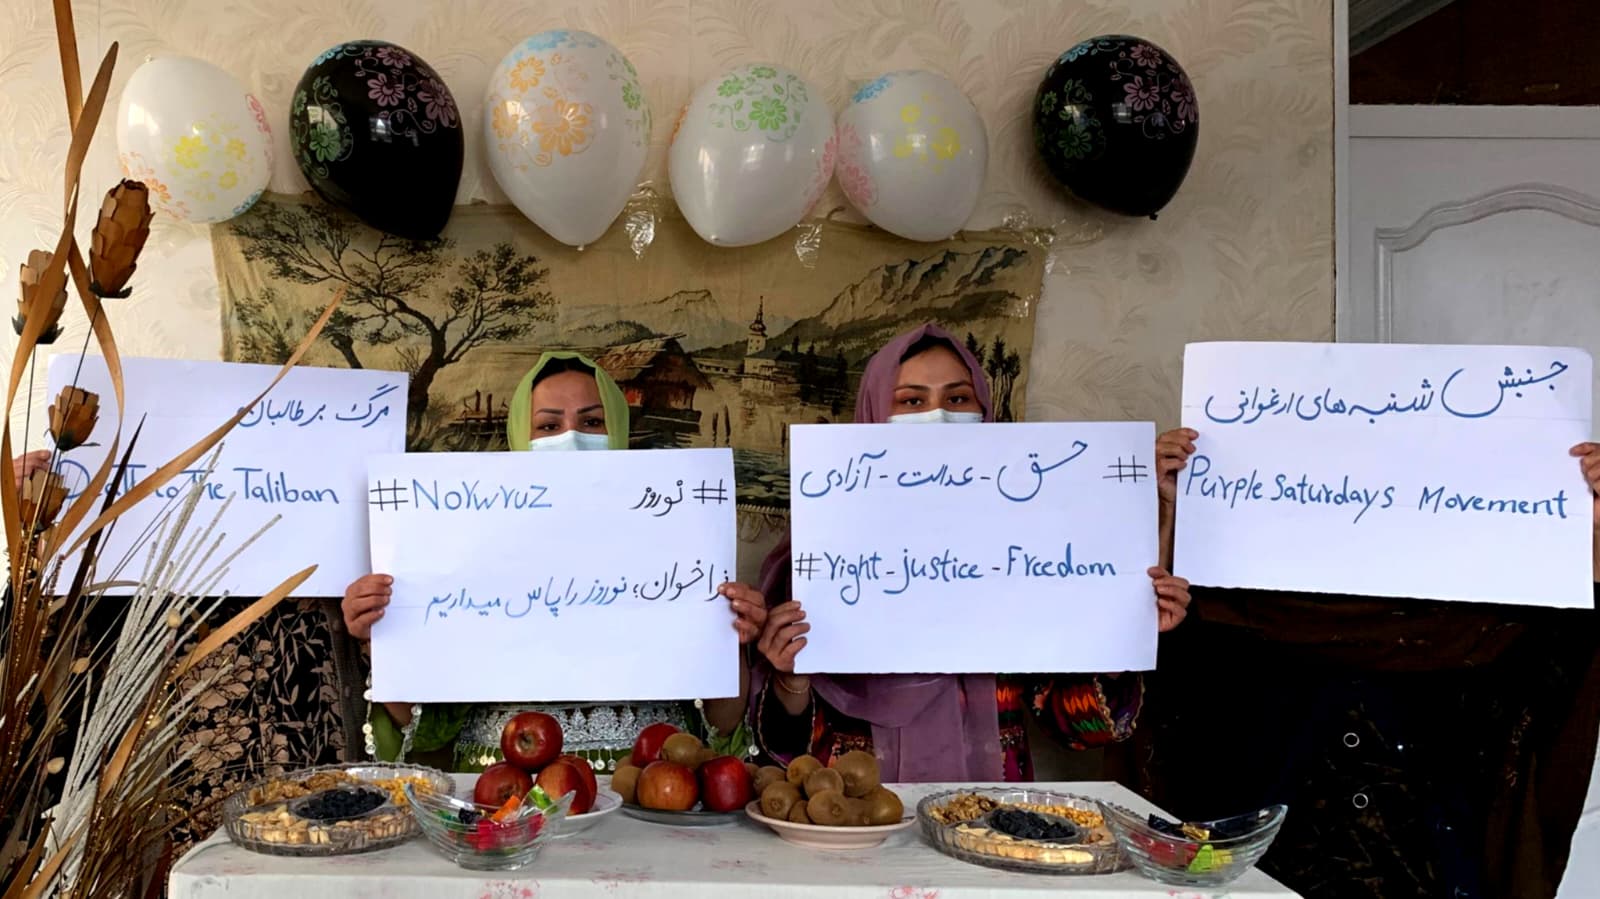 مرگ بر طالبان
Death to The Taliban
#Norwruz
# نوروز
فراخوان؛ نوروز را پاس میداریم
# حق - عدالت - آزادی
#right - justice - Freedom
جنبش شنبه های ارغوانی
Purple Saturdays Movement